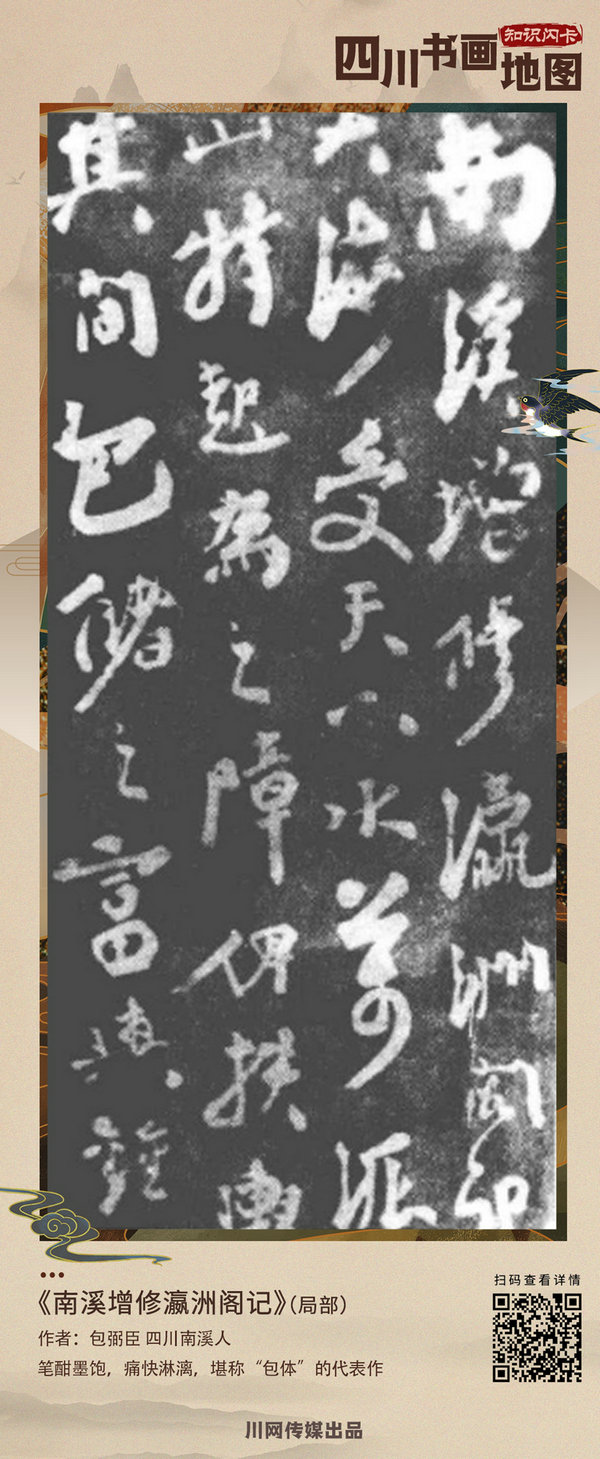 四川书画地图
知识闪卡
南溪增修瀛洲阁记
大海受天下水万派
山特起为之障俾扶舆
其间包储之富与钟
《南溪增修瀛洲阁记》（局部）
作者：包弼臣 四川南溪人
笔酣墨饱，痛快淋漓，堪称“包体”的代表作
扫码查看详情
川网传媒出品